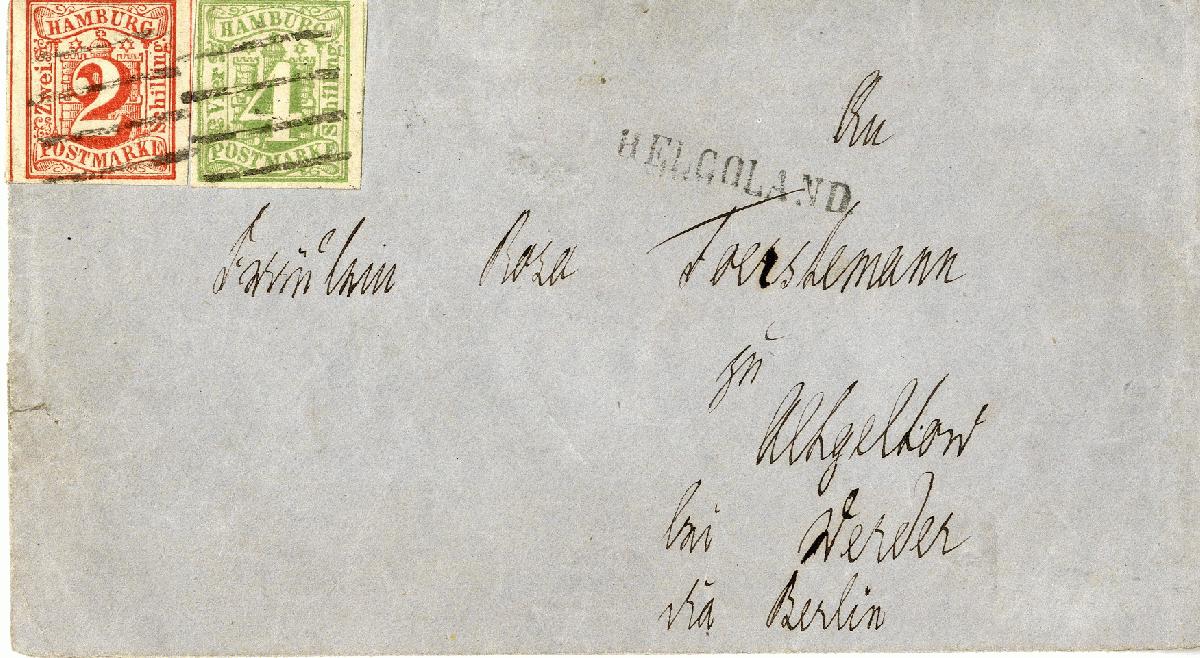 HAMBURG
Zwei
2
Schilling
POSTMARKE
HAMBURG
Vier
4
Schilling
POSTMARKE
HELGOLAND
An
Fräulein Rosa Foerstemann
zu
Altgeltow
bei Werder
via Berlin